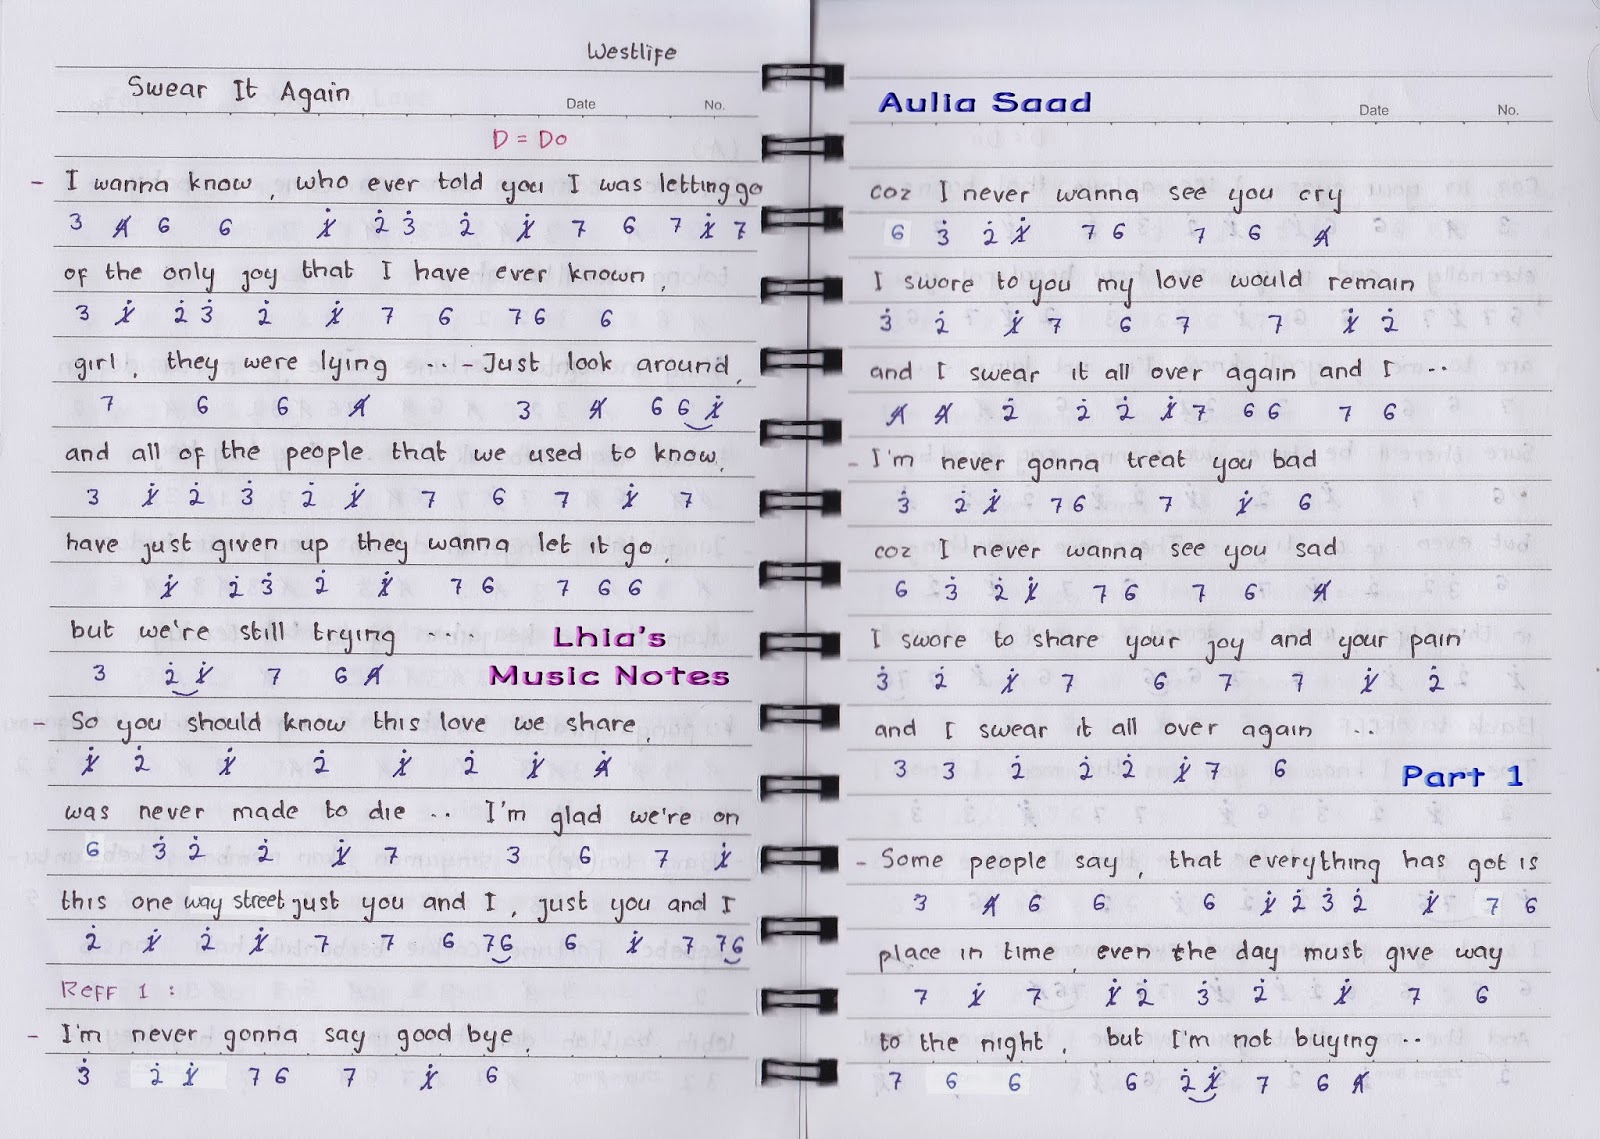 Westlife
Swear It Again
Date No.
D = Do
- I wanna know, who ever told you I was letting go
3 4̸ 6 6 1̸̇ 2̇ 3̇ 2̇ 1̸̇ 7 6 7 1̸̇ 7
of the only joy that I have ever known,
3 1̸̇ 2̇ 3̇ 2̇ 1̸̇ 7 6 7 6 6
girl, they were lying ... - Just look around,
7 6 6 4̸ 3 4̸ 6 6 1̸̇
and all of the people that we used to know,
3 1̸̇ 2̇ 3̇ 2̇ 1̸̇ 7 6 7 1̸̇ 7
have just given up they wanna let it go,
1̸̇ 2̇ 3̇ 2̇ 1̸̇ 7 6 7 6 6
but we're still trying ....
3 2̇ 1̸̇ 7 6 4̸
Lhia's
Music Notes
- So you should know this love we share,
1̸̇ 2̇ 1̸̇ 2̇ 1̸̇ 2̇ 1̸̇ 4̸̇
was never made to die .. I'm glad we're on
6 3̇ 2̇ 2̇ 1̸̇ 7 3 6 7 1̸̇
this one way street just you and I, just you and I
2̇ 1̸̇ 2̇ 1̸̇ 7 7 6 7 6 6 1̸̇ 7 7 6
Reff 1 :
- I'm never gonna say good bye,
3̇ 2̇ 1̸̇ 7 6 7 1̸̇ 6
Aulia Saad
Date No.
coz I never wanna see you cry
6 3̇ 2̇ 1̸̇ 7 6 7 6 4̸
I swore to you my love would remain
3̇ 2̇ 1̸̇ 7 6 7 7 1̸̇ 2̇
and I swear it all over again and I ...
4̸ 4̸ 2̇ 2̇ 2̇ 1̸̇ 7 6 6 7 6
- I'm never gonna treat you bad
3̇ 2̇ 1̸̇ 7 6 7 1̸̇ 6
coz I never wanna see you sad
6 3̇ 2̇ 1̸̇ 7 6 7 6 4̸
I swore to share your joy and your pain
3̇ 2̇ 1̸̇ 7 6 7 7 1̸̇ 2̇
and I swear it all over again ...
3 3 2̇ 2̇ 2̇ 1̸̇ 7 6
Part 1
- Some people say, that everything has got is
3 4̸ 6 6 6 1̸̇ 2̇ 3̇ 2̇ 1̸̇ 7 6
place in time, even the day must give way
7 1̸̇ 7 1̸̇ 2̇ 3̇ 2̇ 1̸̇ 7 6
to the night, but I'm not buying ..
7 6 6 6 2̇ 1̸̇ 7 6 4̸